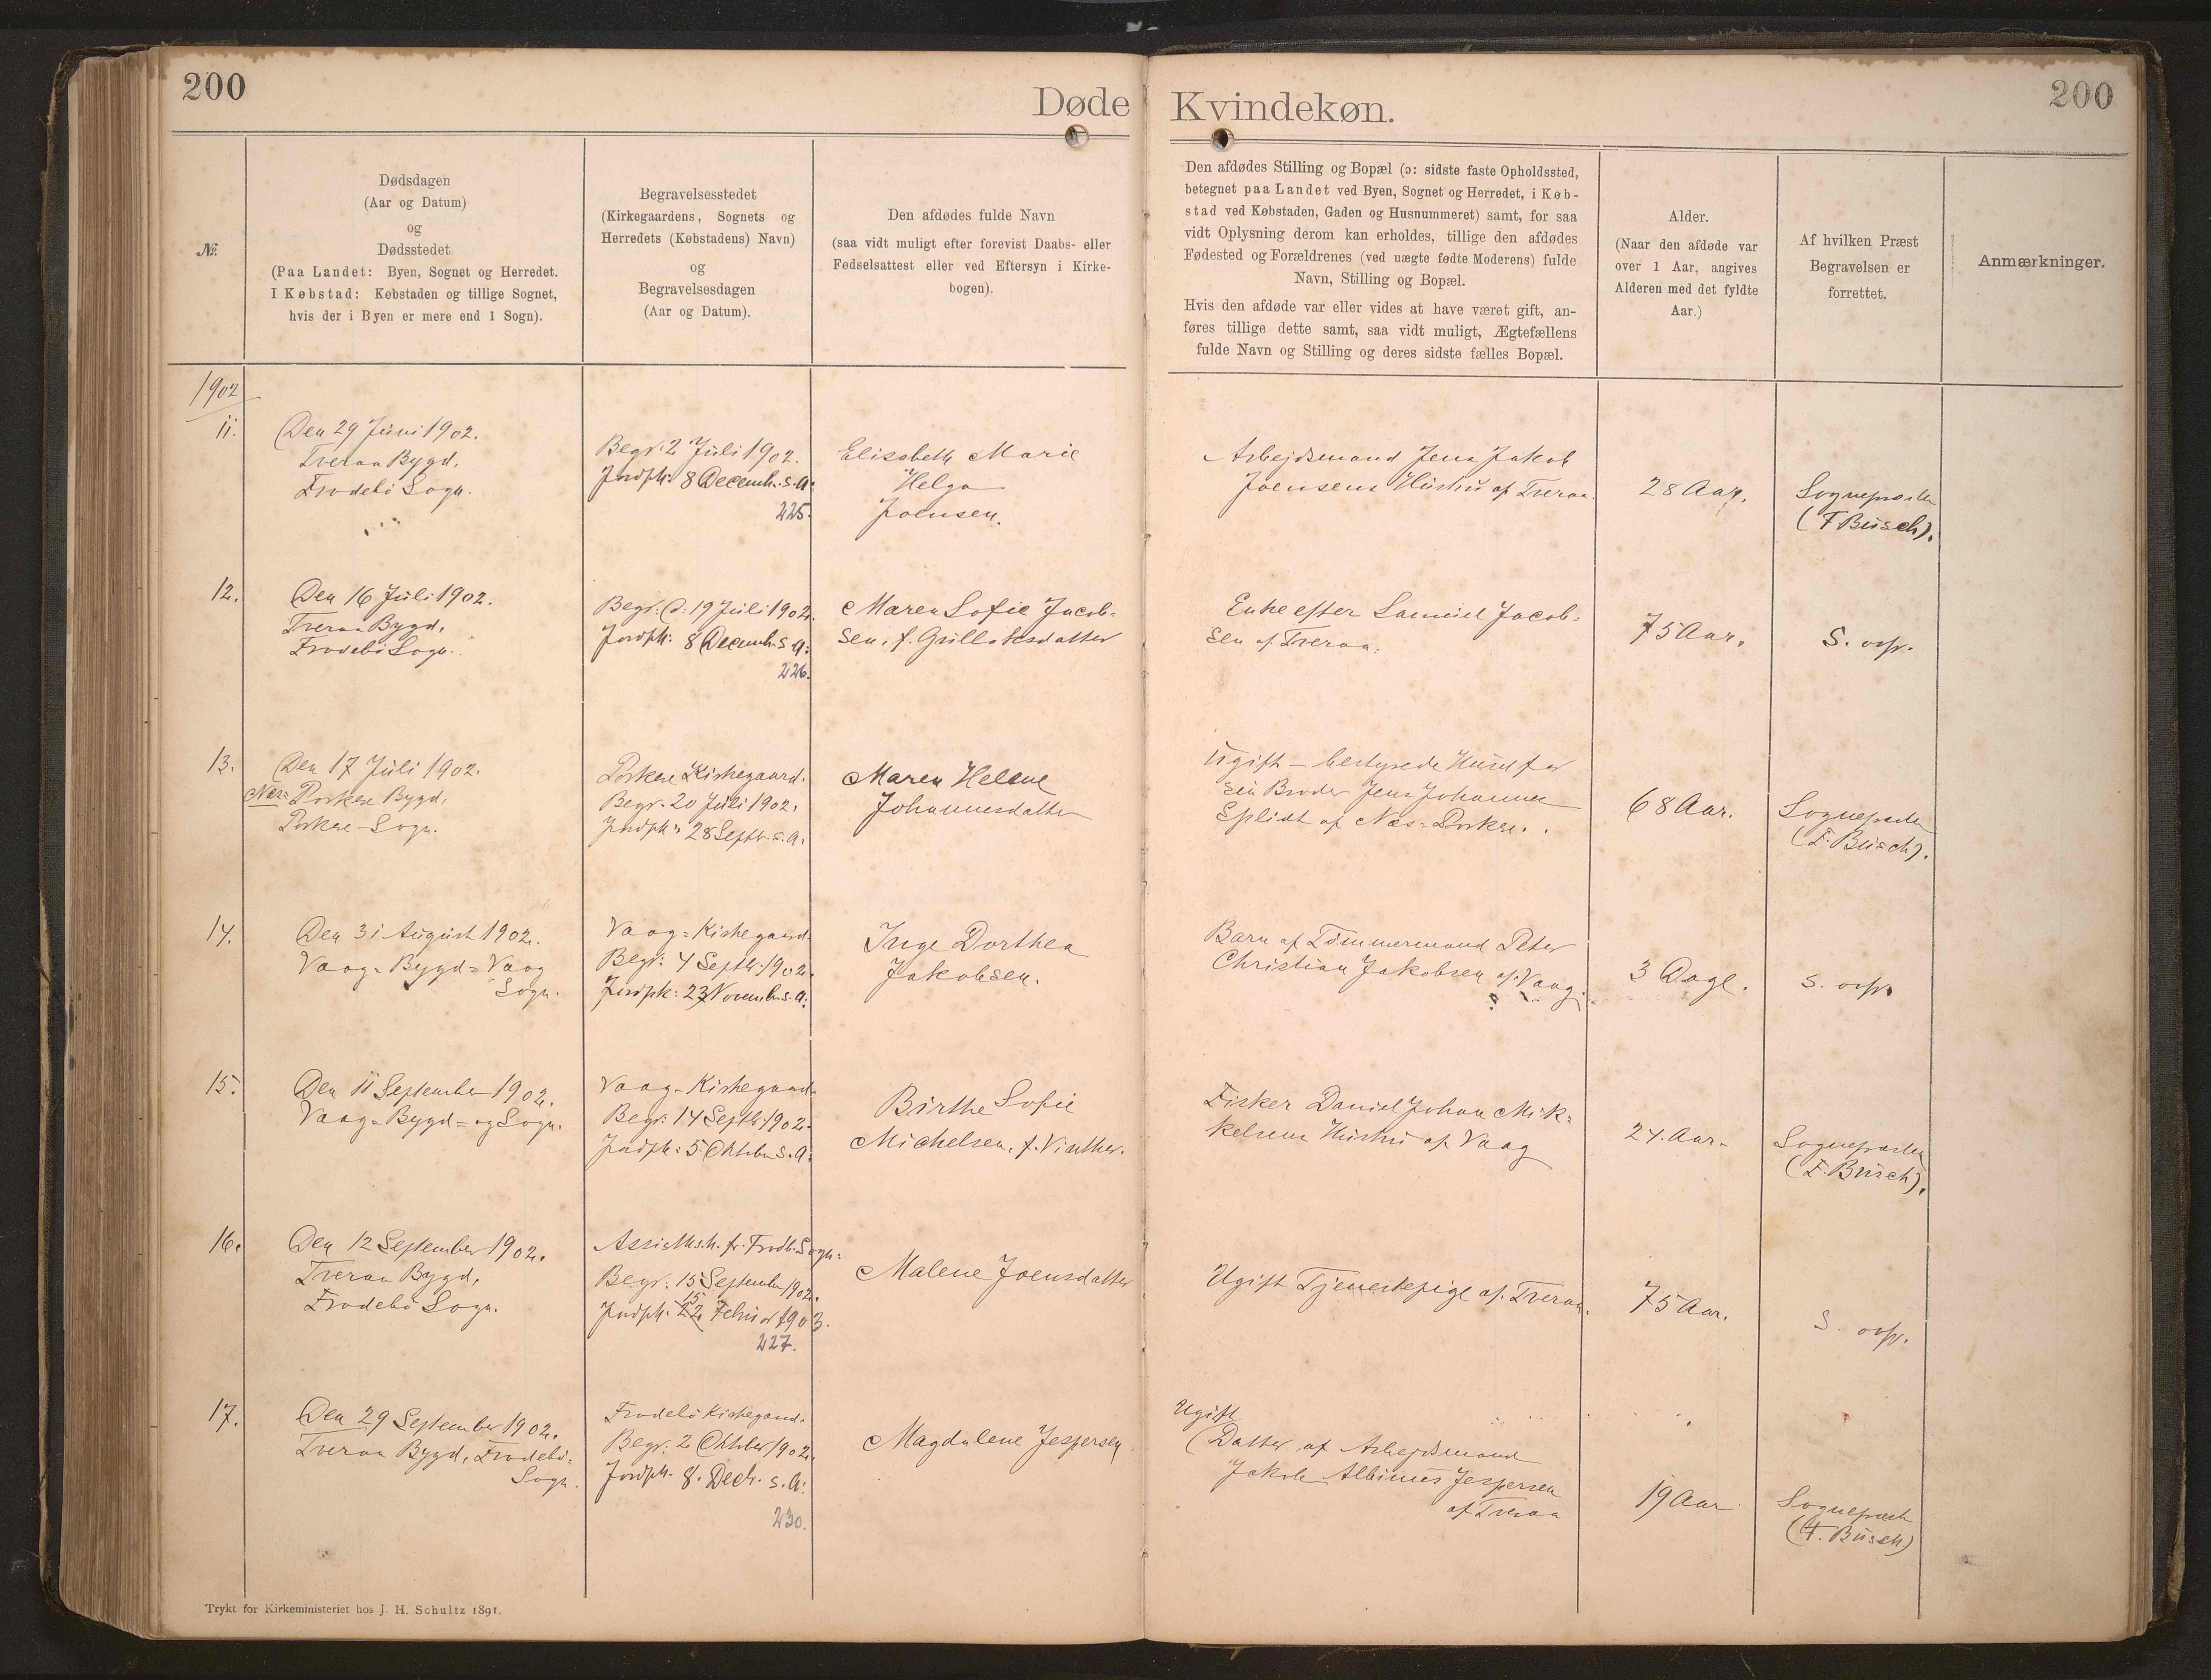 200
Døde Kvindekøn.
200
№.
Dødsdagen
(Aar og Datum)
og
Dødsstedet
(Paa Landet: Byen, Sognet og Herredet.
I Købstad: Købstaden og tillige Sognet,
hvis der i Byen er mere end 1 Sogn).
Begravelsesstedet
(Kirkegaardens, Sognets og
Herredets (Købstadens) Navn)
og
Begravelsesdagen
(Aar og Datum).
Den afdødes fulde Navn
(saa vidt muligt efter forevist Daabs- eller
Fødselsattest eller ved Eftersyn i Kirke-
bogen).
Den afdødes Stilling og Bopæl (ɔ: sidste faste Opholdssted,
betegnet paa Landet ved Byen, Sognet og Herredet, i Køb-
stad ved Købstaden, Gaden og Husnummeret) samt, for saa
vidt Oplysning derom kan erholdes, tillige den afdødes
Fødested og Forældrenes (ved uægte fødte Moderens) fulde
Navn, Stilling og Bopæl.
Hvis den afdøde var eller vides at have været gift, an-
føres tillige dette samt, saa vidt muligt, Ægtefællens
fulde Navn og Stilling og deres sidste fælles Bopæl.
Alder.
(Naar den afdøde var
over 1 Aar, angives
Alderen med det fyldte
Aar.)
Af hvilken Præst
Begravelsen er
forrettet.
Anmærkninger.
1902
11.
Den 29 Juni 1902.
Tveraa Bygd,
Frodebö Sogn.
Begr. 2 Juli 1902.
Jordpk: 8 Decemb. s. A:
225.
Elisabeth Marie
Helga
Joensen.
Arbejdsmand Jens Jakob
Joensens Hustru af Tveraa.
28 Aar.
Sognepræsten
(F Busch).
12.
Den 16 Juli 1902.
Tveraa Bygd,
Frodebö Sogn.
Begr. d. 19 Juli 1902.
Jordpk: 8 Decemb. s A:
226.
Maren Sofie Jacob-
sen, f. Gullaksdatter
Enke efter Samuel Jacob-
sen af Tveraa.
75 Aar.
S. ovfr.
13.
Den 17 Juli 1902.
Næs= Porkere Bygd,
Porkere-Sogn.
Porkere Kirkegaard.
Begr. 20 Juli 1902.
Jordpk: 28 Septb. s. A.
Maren Helene
Johannesdatter
Ugift - bestyrede Huset for
sin Broder Jens Johannes
Splidt af Næs=Porkere.
68 Aar.
Sognepræsten
(F. Busch).
14.
Den 31 August 1902.
Vaag=Bygd=Vaag
Sogn.
Vaag=Kirkegaard
Begr. 4 Septb. 1902.
Jordpk: 23 Novemb. s. A:
Inge Dorthea
Jakobsen.
Barn af Tömmermand Peter
Christian Jakobsen af Vaag
3 Dage.
S. ovfr.
15.
Den 11 September 1902.
Vaag=Bygd=og Sogn.
Vaag-Kirkegaard
Begr. 14 Septb. 1902.
Jordpk: 5 Oktober s. A:
Birthe Sofie
Michelsen, f. Vinther.
Fisker Daniel Johan Mik-
kelsens Hustru af Vaag
24. Aar.
Sognepræsten
(F. Busch).
16.
Den 12 September 1902.
Tveraa Bygd,
Frodebö Sogn.
Begr: 15 September 1902.
15
Jordpk: 22 Februar 1903.
227.
Malene Joensdatter
Ugift Tjenestepige af Tveraa.
75 Aar.
S. ovfr.
17.
Den 29 September 1902.
Tveraa Bygd, Frodebö=
Sogn.
Frodebö Kirkegaard.
Begr: 2 Oktober 1902.
Jordpk. 8. Decb. s. A:
230.
Magdalene Jespersen
Ugift
Datter af Arbejdsmand
Jakob Albinus Jespersen
af Tveraa
19 Aar
Sognepræst
(F. Busch)
Trykt for Kirkeministeriet hos J. H. Schultz 1891.